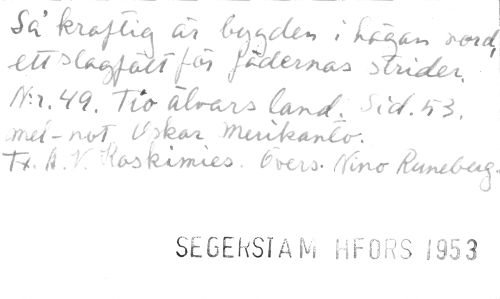 Så kraftig är bygden i högan nord,
ett slagfält för fädernas strider.
N:r. 49. Tio älvars land. Sid. 53.
mel-not Oskar Merikanto.
Tx. A. V. Koskimies. Övers. Nino Runeberg.
SEGERSTAM HFORS 1953